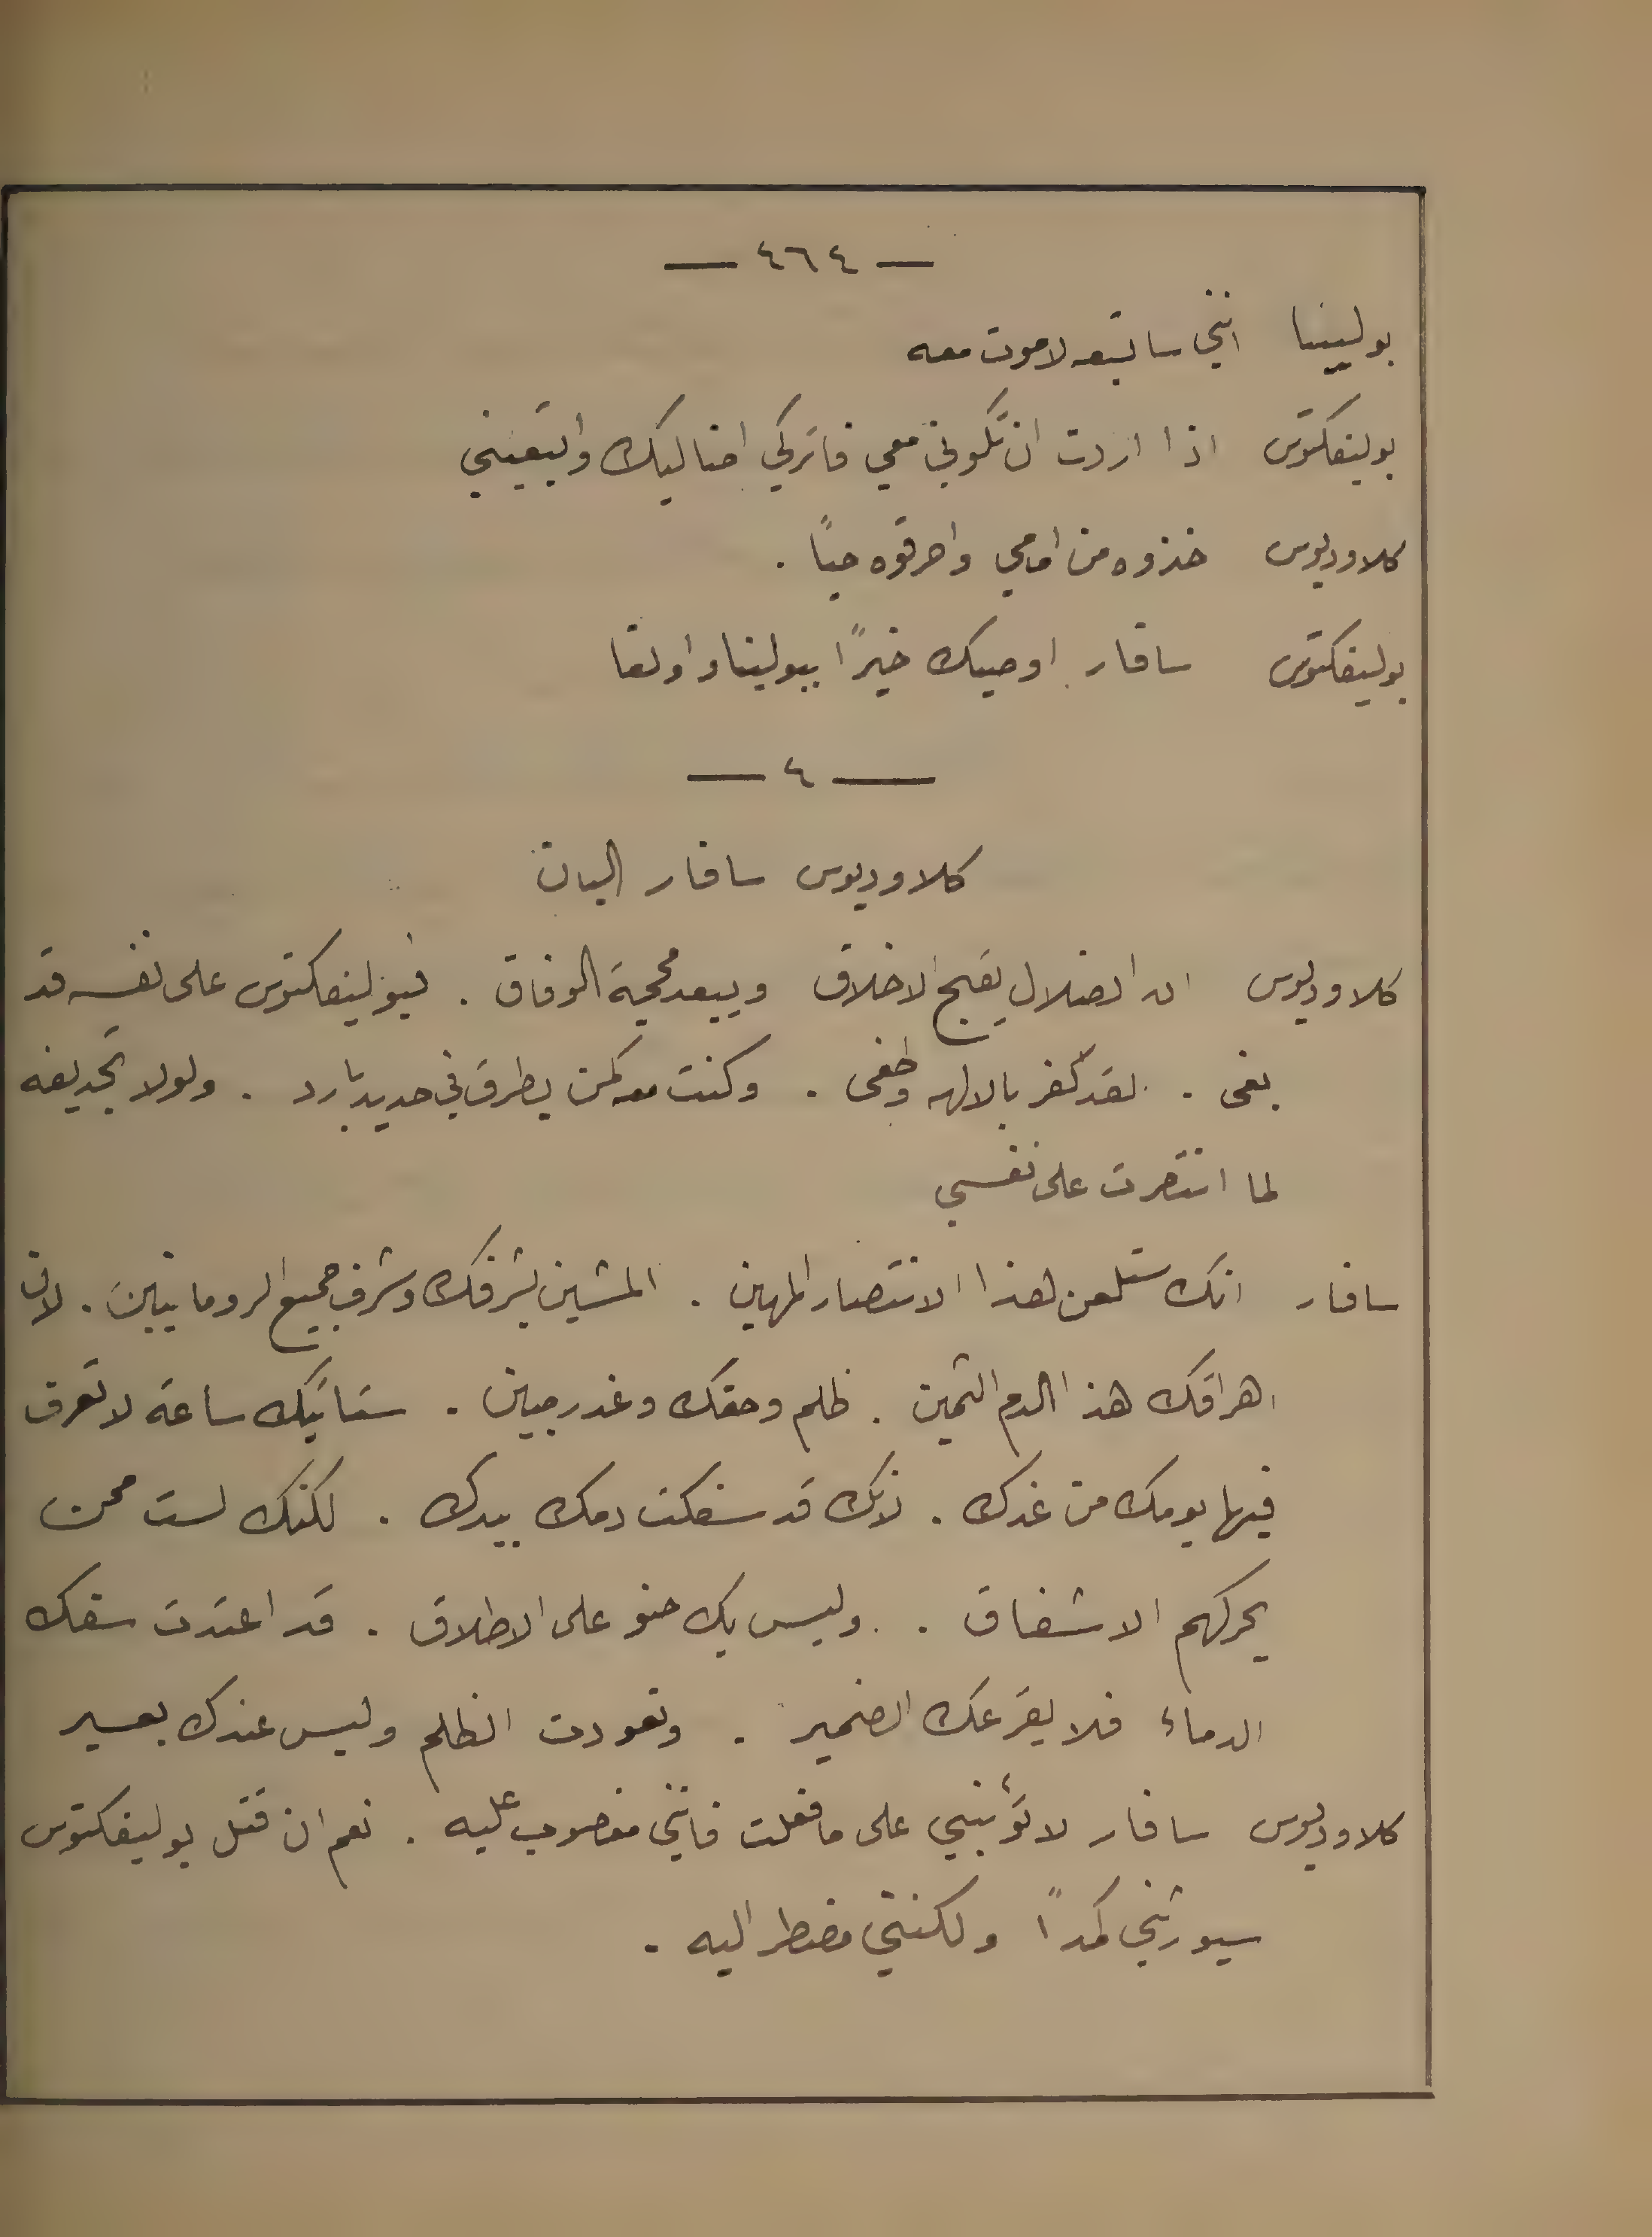 — ٤٦٤ —
بولينا انني ساتبعه لاموت معه
بوليفكتوس اذا اردت ان تكوني معي فاتركي اضاليلك واتبعيني
كلاوديوس خذوه من امامي واحرقوه حياً .
بوليفكتوس سافار اوصيك خيراً ببولينا واولقا
— ٤ —
كلاوديوس سافار البان
كلاوديوس ان الضلال يقبح الاخلاق ويبعد محجة الوفاق . فبوليفكتوس على نفسه قد
بغى . لقد كفر بالالهه وطغى . وكنت معه كمن يطرق في حديد بارد . ولولا تجديفه
لما انتصرت على نفسي
سافار انك ستلعن لهذا الانتصار المهين . المشين بشرفك وشرف جميع الرومانيين . لان
اهراقك هذا الدم الثمين . ظلم وحقك وغدر مبين . ستاتيك ساعة لا تعرف
فيها يومك من غدك . لانك قد سفكت دمك بيدك . لكنك لست ممن
يحركهم الاشفاق . وليس بك حنو على الاطلاق . قد اعتدت سفك
الدماء فلا يقرعك الضمير . وتعودت الظلم وليس عندك بعسير
كلاوديوس سافار لا تؤنبني على ما فعلت فانني مغصوب عليه . نعم ان قتل بوليفكتوس
سيورثني كمداً ولكنني مضطر اليه .